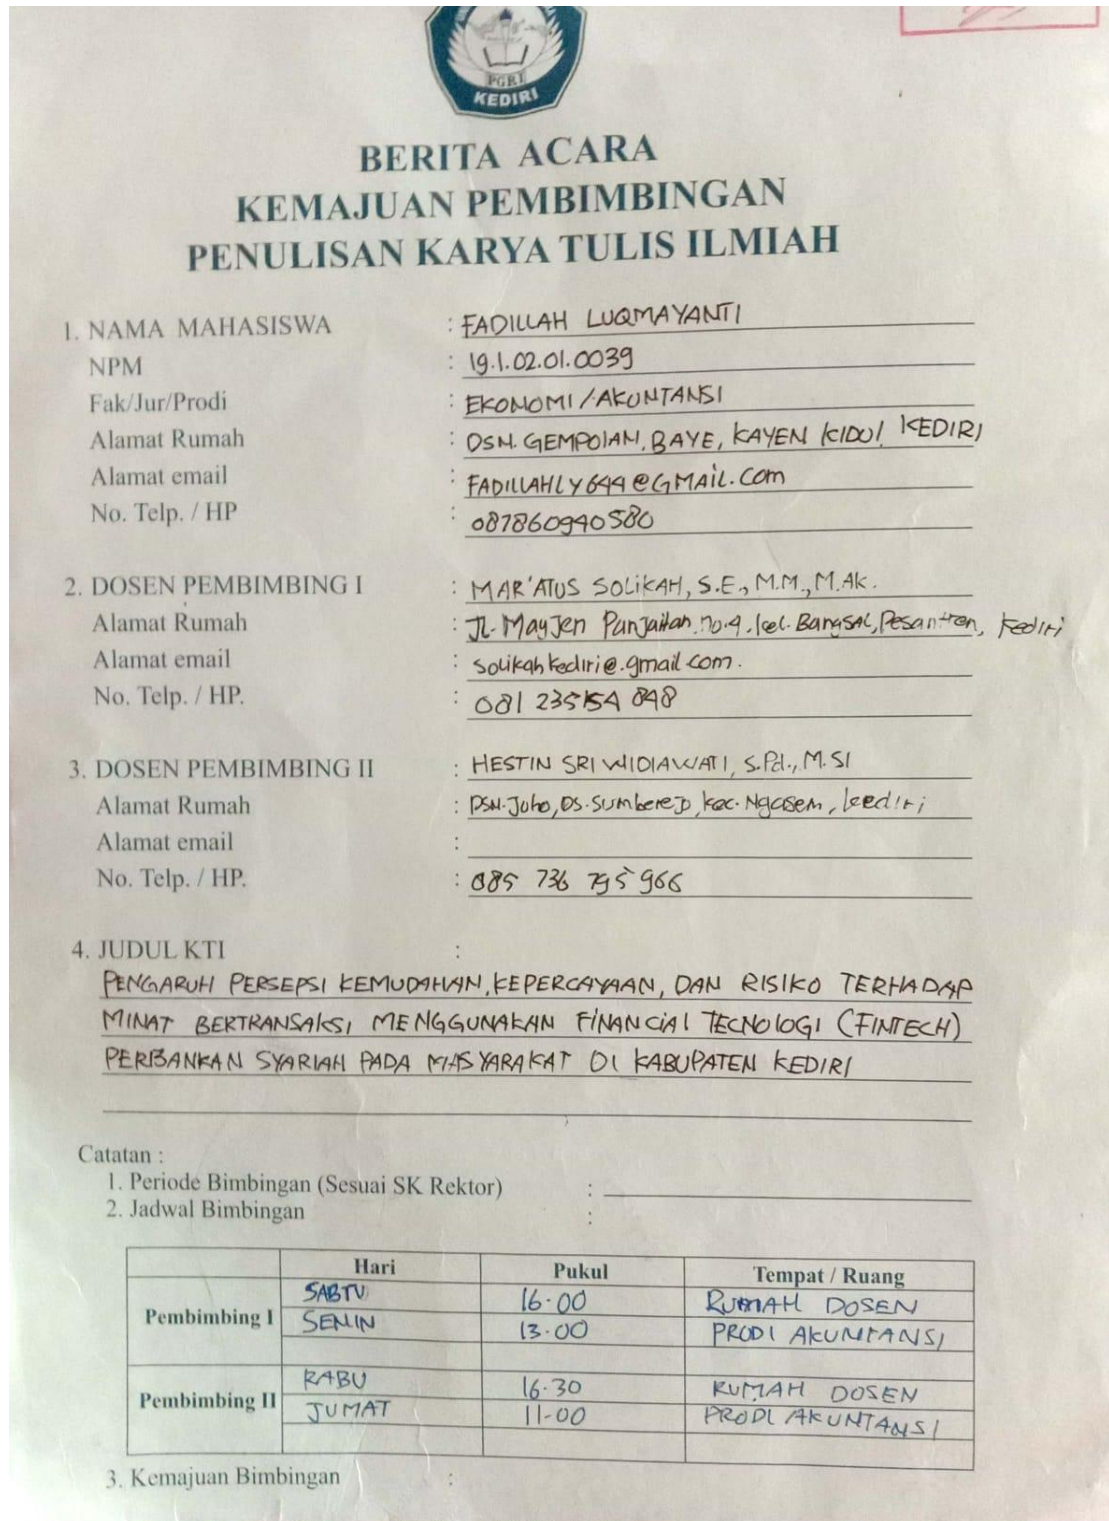 PGRI
KEDIRI
BERITA ACARA
KEMAJUAN PEMBIMBINGAN
PENULISAN KARYA TULIS ILMIAH
1. NAMA MAHASISWA : FADILLAH LUQMAYANTI
NPM : 19.1.02.01.0039
Fak/Jur/Prodi : EKONOMI/AKUNTANSI
Alamat Rumah : DSN. GEMPOLAN, BAYE, KAYEN KIDUL KEDIRI
Alamat email : FADILLAHLY644@GMAIL.COM
No. Telp. / HP : 087860940580
2. DOSEN PEMBIMBING I : MAR'ATUS SOLIKAH, S.E., M.M., M.AK.
Alamat Rumah : JL. MayJen Panjaitan no.9, kel. Bangsal, Pesantren, Kediri
Alamat email : solikahkediri@.gmail.com.
No. Telp. / HP. : 081 235154 848
3. DOSEN PEMBIMBING II : HESTIN SRI WIDIAWATI, S.Pd., M.SI
Alamat Rumah : DSN. Joho, DS. Sumberejo, kec. Ngasem, kediri
Alamat email :
No. Telp. / HP. : 085 736 795 966
4. JUDUL KTI :
PENGARUH PERSEPSI KEMUDAHAN, KEPERCAYAAN, DAN RISIKO TERHADAP
MINAT BERTRANSAKSI MENGGUNAKAN FINANCIAL TECNOLOGI (FINTECH)
PERBANKAN SYARIAH PADA MASYARAKAT DI KABUPATEN KEDIRI
Catatan :
1. Periode Bimbingan (Sesuai SK Rektor) :
2. Jadwal Bimbingan :
Hari Pukul Tempat / Ruang
Pembimbing I SABTU 16.00 RUMAH DOSEN
SENIN 13.00 PRODI AKUNTANSI
Pembimbing II RABU 16.30 RUMAH DOSEN
JUMAT 11.00 PRODI AKUNTANSI
3. Kemajuan Bimbingan :